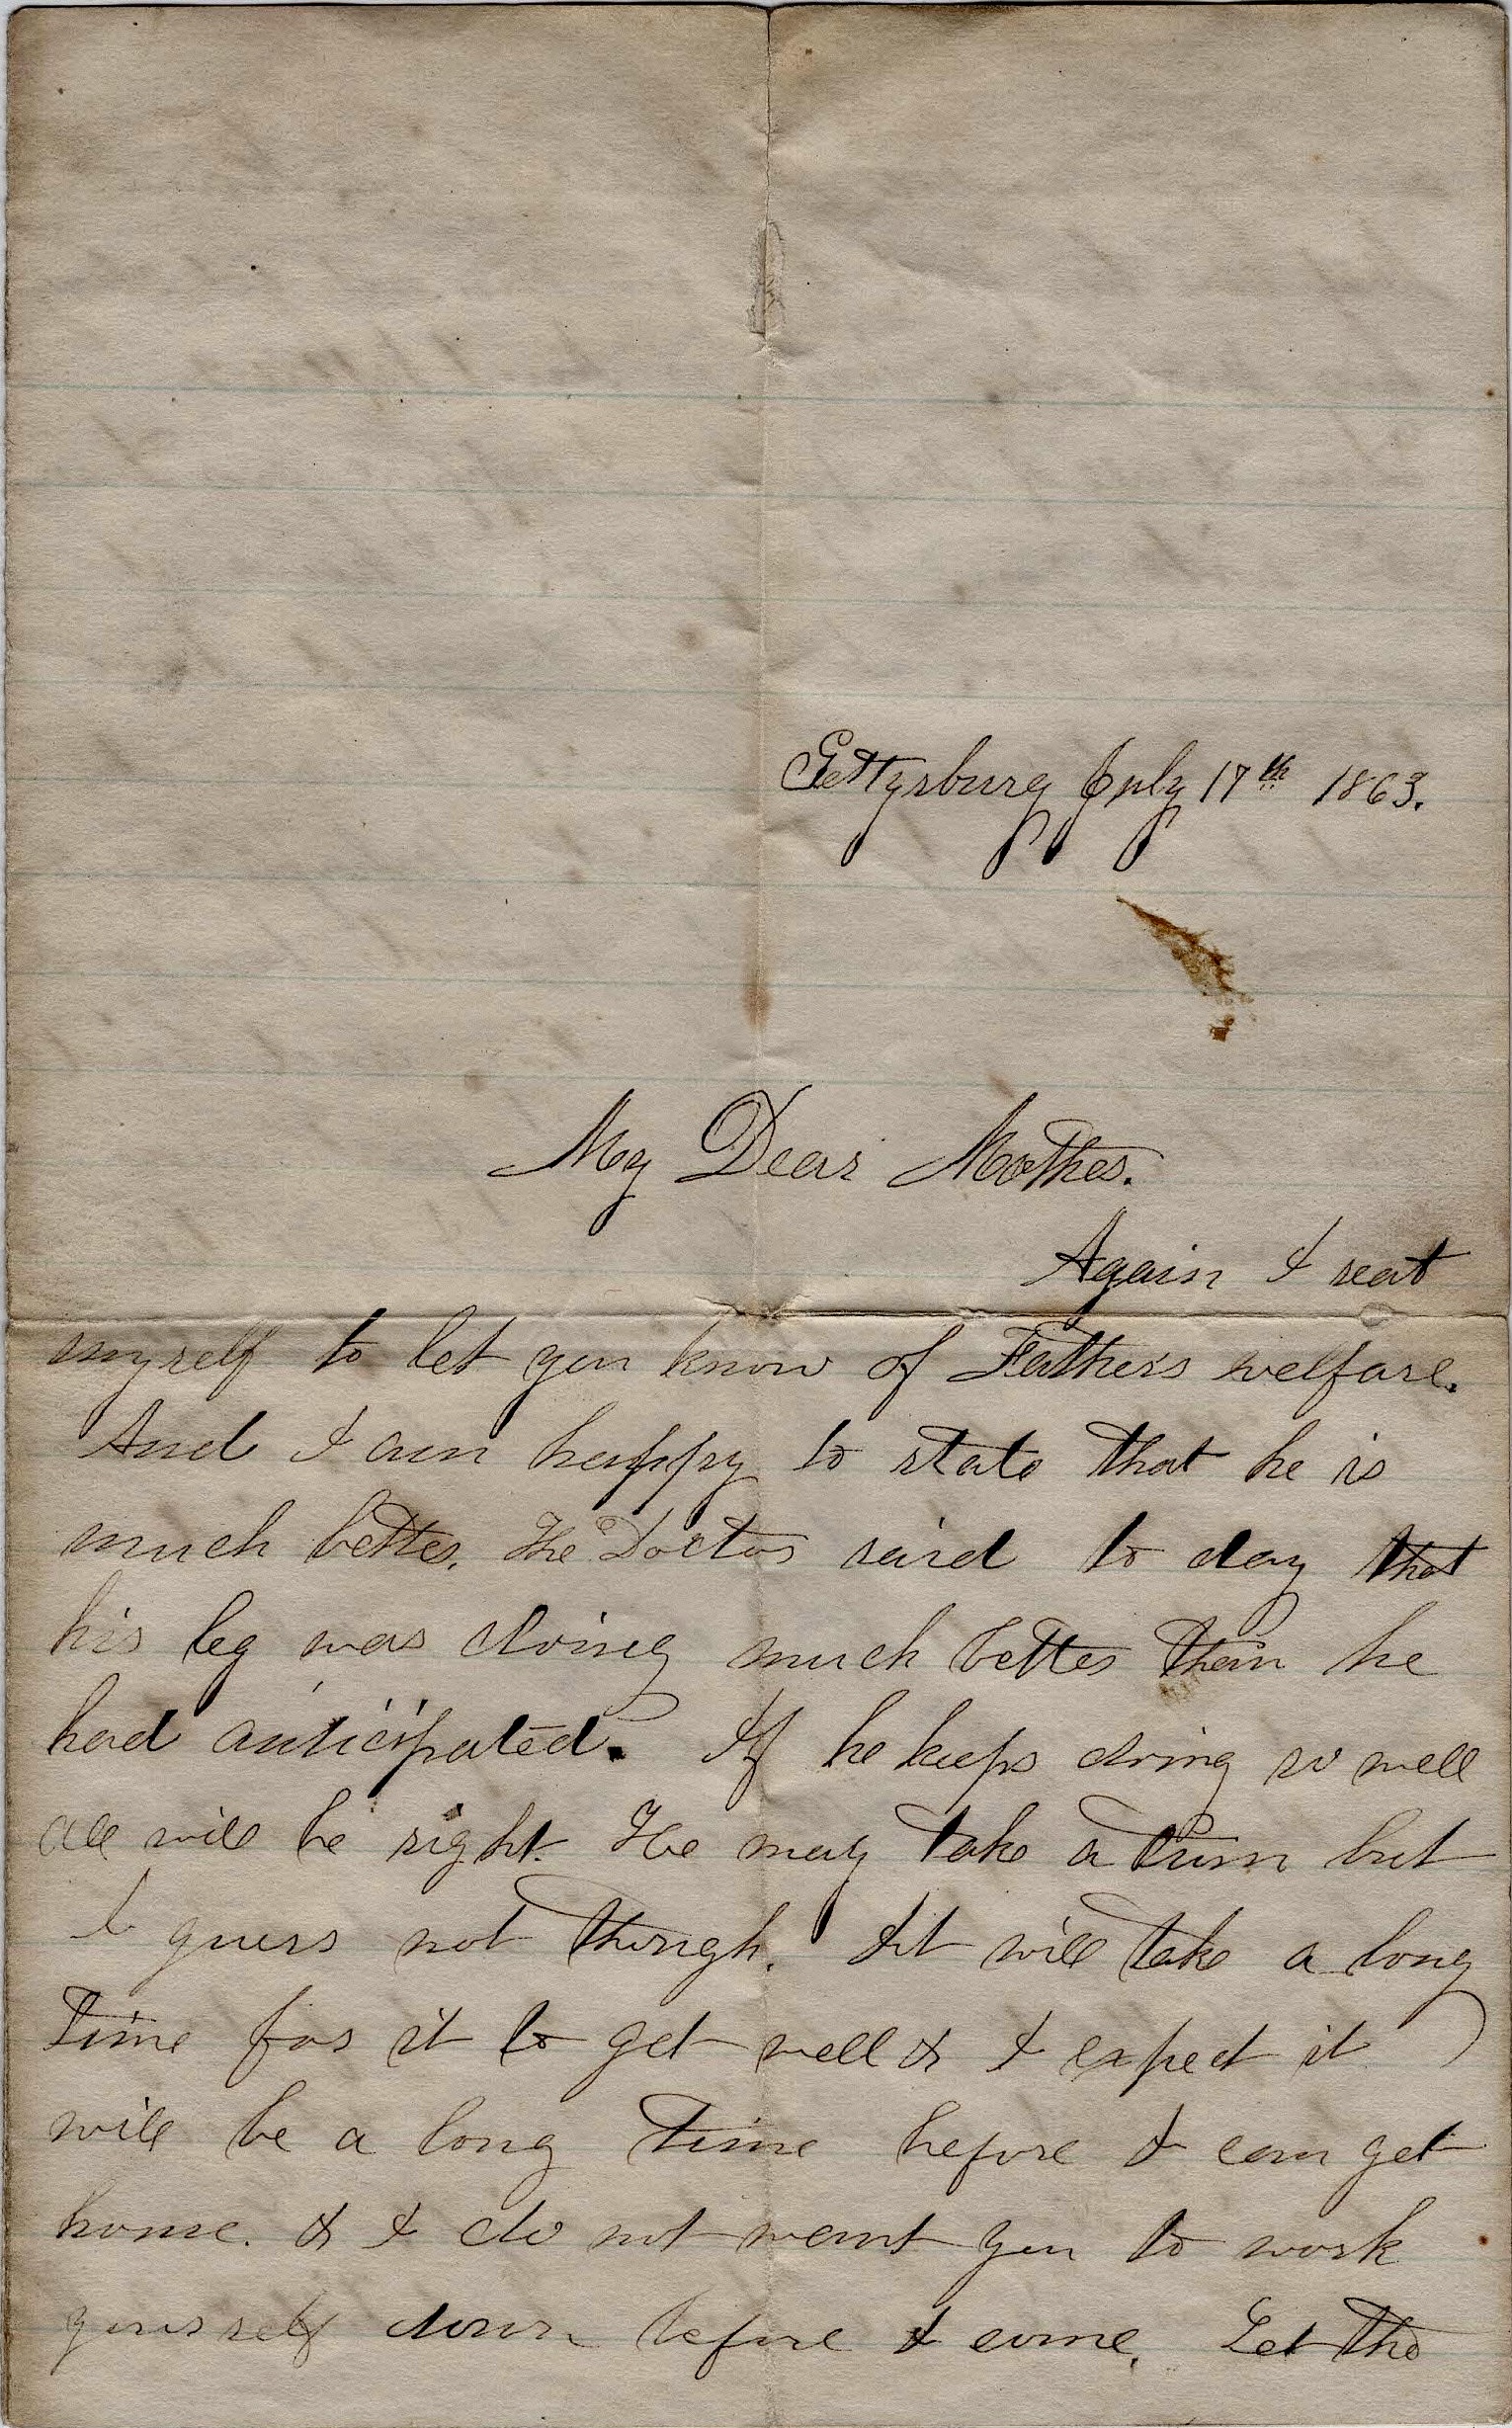 Gettysburg July 17th 1863.
My Dear Mother.
Again I seat
myself to let you know of Father's welfare.
And I am happy to state that he is
much better. The Doctor said to day that
his leg was doing much better than he
had anticipated. If he keeps doing so well
all will be right. He may take a turn but
I guess not though. It will take a long
time for it to get well & I expect it
will be a long time before I can get
home. & I do not want you to work
yourself down before I come. Let the